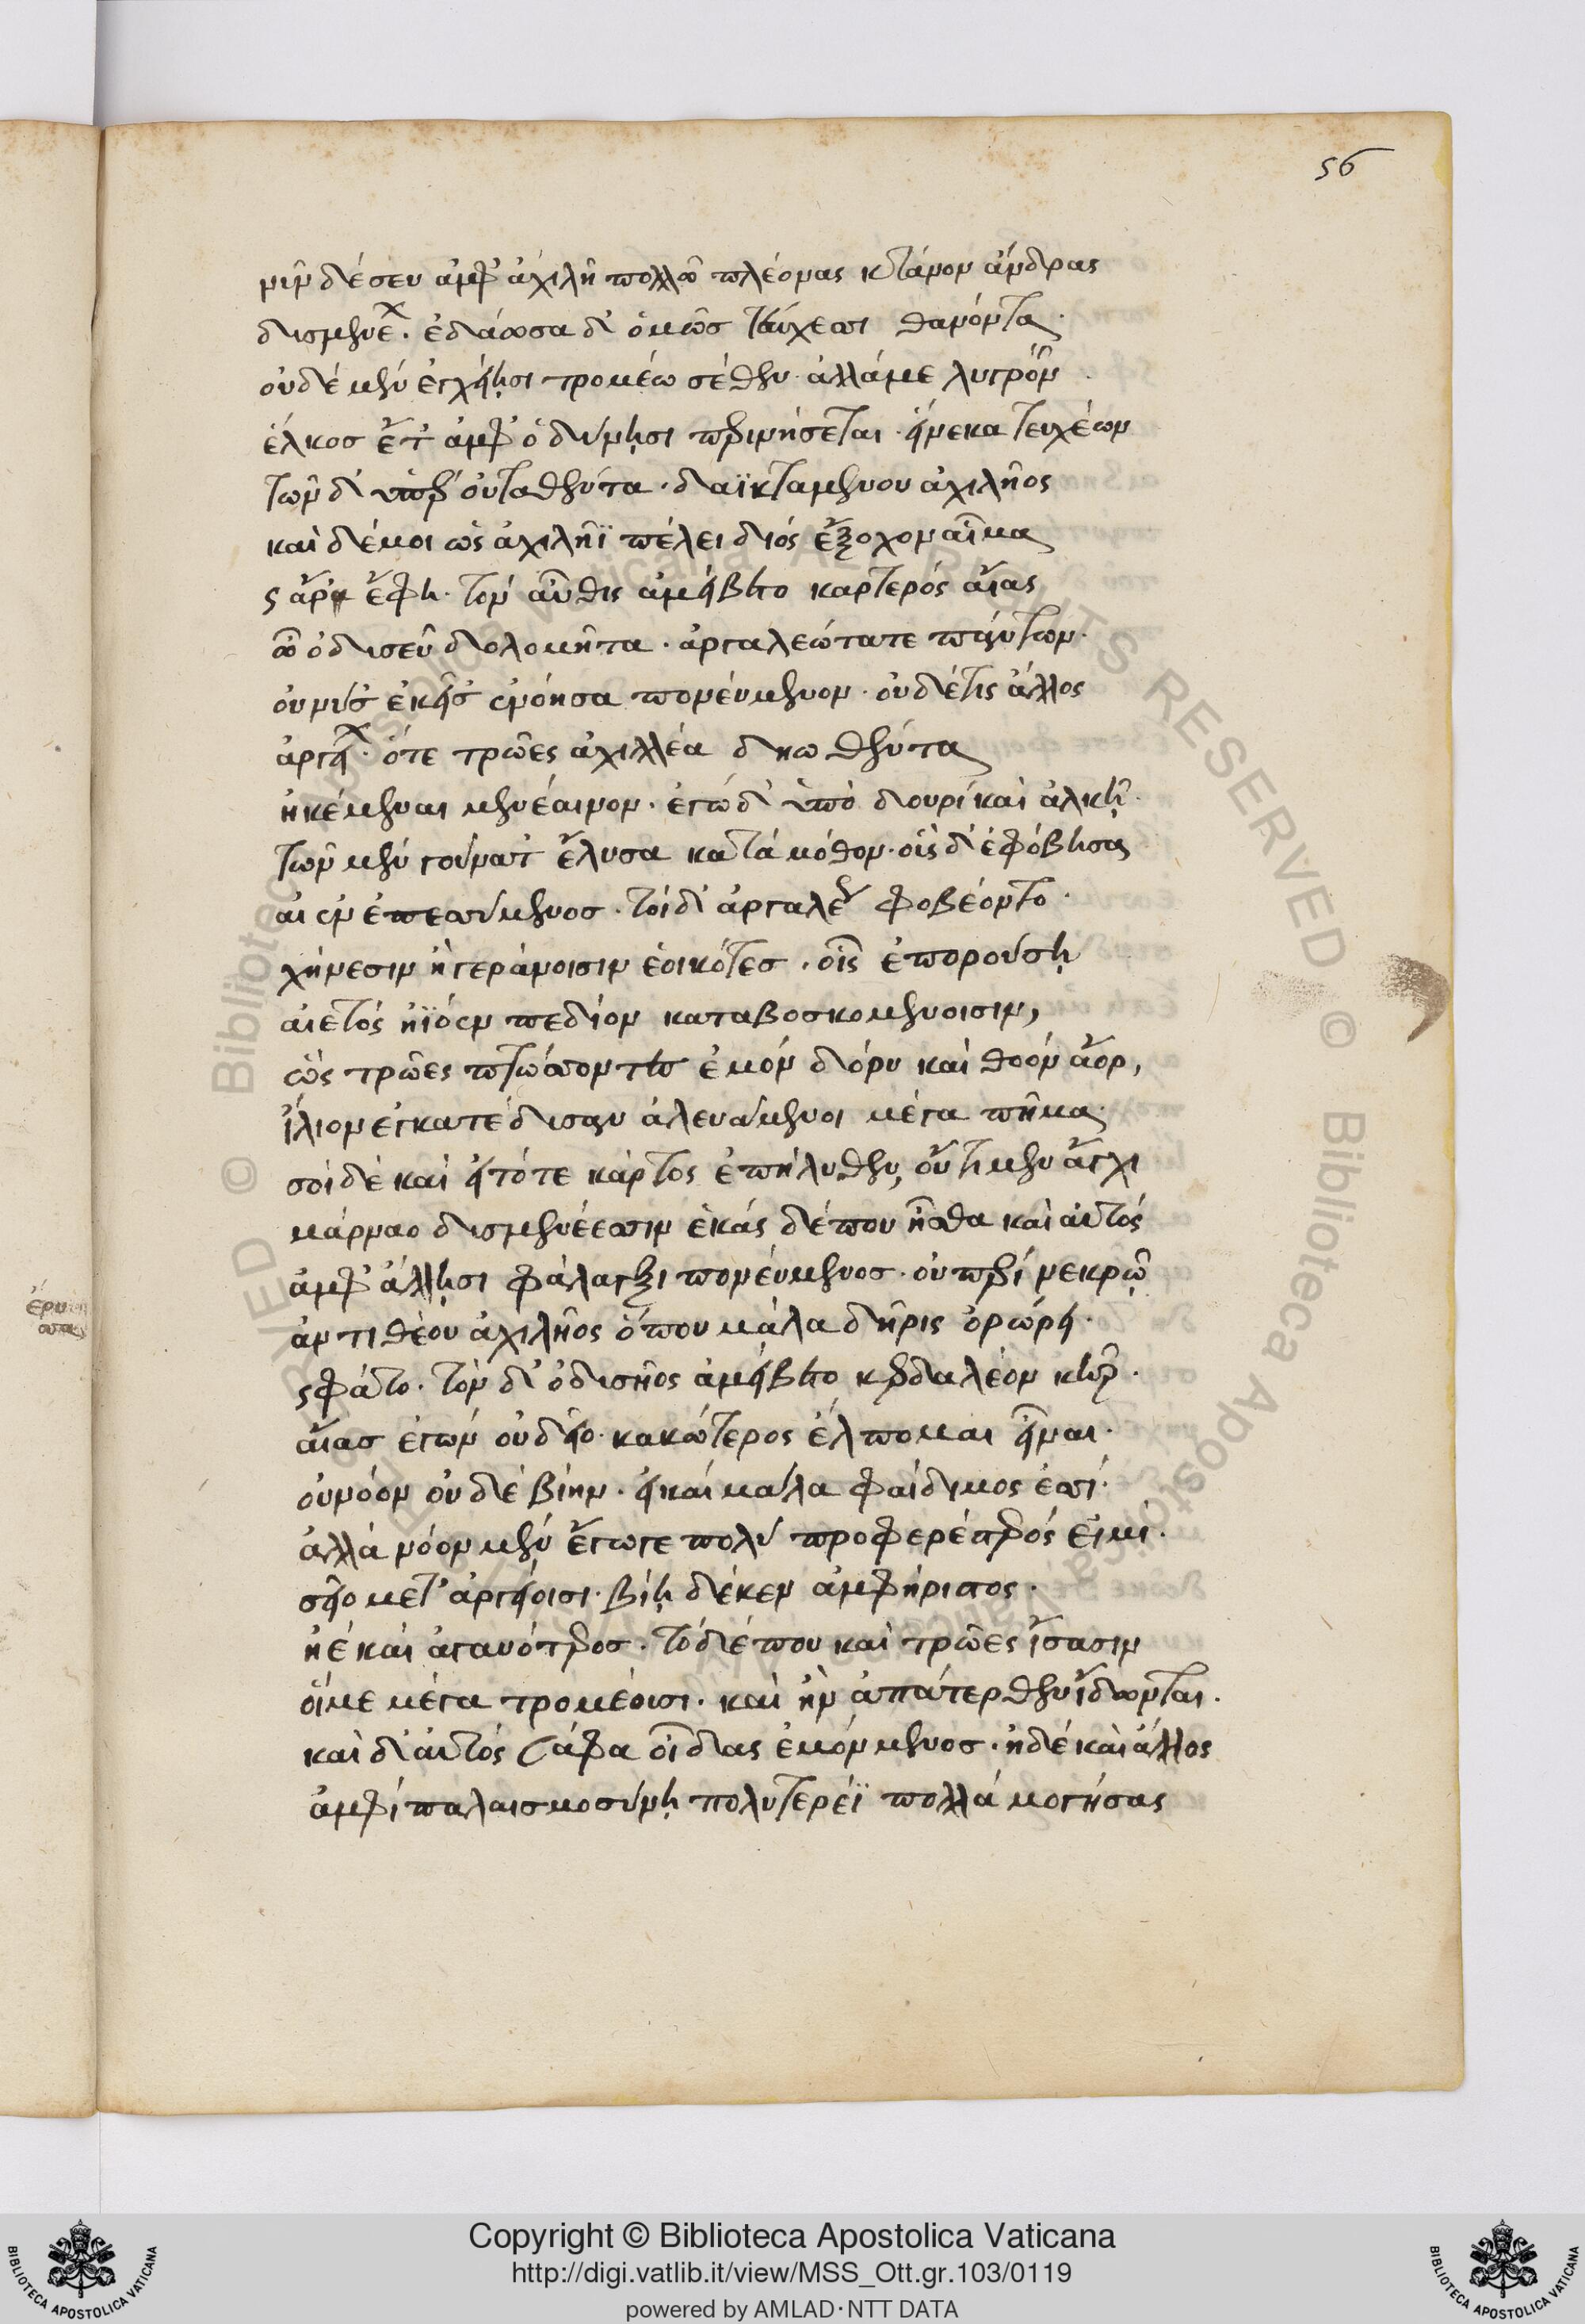 56
νῦν δέ σευ ἀμφ' ἀχιλῆι πολλῶ πλέονας κτάνον ἄνδρας
δυσμενέων. ἐσάωσα δ' ὁμῶς τεύχεσι θανόντα.
οὐδὲ μὲν ἐγχείησι τρομέω σέθεν. ἀλλά με λυγρὸν
ἕλκος ἔτ' ἀμφ' ὀδύνησι περιμήσεται. εἵνεκα τευχέων
τῶνδ' ὕπερ οὐταθέντα. δαϊκταμένου ἀχιλῆος
καὶ δέ μοι ὡς ἀχιλῆϊ πέλει διὸς ἔξοχον αἷμα
ς ἄρ' ἔφη. τὸν αὖθις ἀμείβετο καρτερὸς αἴας
ὦ ὀδυσεῦ δολομῆτα. ἀργαλεώτατε πάντων.
οὐ νύ σ' ἐκεῖσ' ἐνόησα πονεύμενον. οὐδέ τις ἄλλος
ἀργείων. ὅτε τρῶες ἀχιλλέα δηωθέντα
ἑλκέμεναι μενέαινον. ἐγὼ δ' ὑπὸ δουρὶ καὶ ἀλκῆ.
τῶν μὲν γούνατ' ἔλυσα κατὰ μόθον. οὓς δ' ἐφόβησα
αἰὲν ἐπεσσύμενος. τοὶ δ' ἀργαλέως φοβέοντο.
χήνεσιν ἢ γεράνοισιν ἐοικότες. οἷς ἐπορούση
αἰετὸς ἠϊόεν πεδίον καταβοσκομένοισιν,
ὣς τρῶες πτώσσοντες ἐμὸν δόρυ καὶ θοὸν ἄορ,
ἴλιον ἐς κατέδυσαν ἀλευάμενοι μέγα πῆμα.
σοὶ δὲ καὶ εἰ τότε κάρτος ἐπήλυθεν, οὔ τι μεν ἄγχι
μάρναο δυσμενέεσσιν ἑκὰς δέ που ἦσθα καὶ αὐτὸς
ἀμφ' ἄλλησι φάλαγξι πονεύμενος. οὐ περὶ νεκρῷ
ἀντιθέου ἀχιλῆος ὅπου μάλα δῆρις ὀρώρει.
ς φάτο. τὸν δ' ὀδυσῆος ἀμείβετο κερδαλέον κῆρ.
αἶας ἐγὼν οὐ σεῖο κακώτερος ἔλπομαι εἶναι.
οὐ νόον οὐδὲ βίην. εἰ καὶ μάλα φαίδιμος ἐσσί.
ἀλλὰ νόον μὲν ἔγωγε πολὺ προφερέστερός εἰμι.
σεῖο μετ' ἀργείοισι. βίη δέ κεν ἀμφήριστος.
ἠὲ καὶ ἀγαυότερος. τὸ δέ που καὶ τρῶες ἴσασιν
οἵ με μέγα τρομέουσι. καὶ ἢν ἀπάτερθεν ἴδωνται.
καὶ δ' αὐτὸς σάφα οἶδας ἐμὸν μένος. ἠδὲ καὶ ἄλλος
ἀμφὶ παλαισμοσύνη πολυτερέϊ πολλὰ μογήσας
Copyright © Biblioteca Apostolica Vaticana
http://digi.vatlib.it/view/MSS_Ott.gr.103/0119
powered by AMLAD·NTT DATA